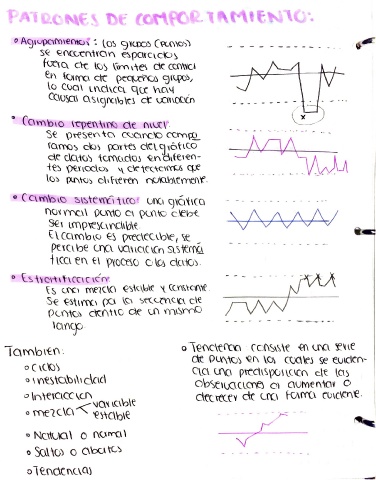 PATRONES DE COMPORTAMIENTO:
• Agrupamientos: los grupos (puntos)
se encuentran esparcidos
fuera de los límites de control
en forma de pequeños grupos,
lo cual indica que hay
causas asignables de variación
• Cambio repentino de nivel:
Se presenta cuando compa
ramos dos partes del gráfico
de datos tomados en diferen-
tes periodos y detectamos que
los puntos difieren notablemente.
• Cambio sistemático: una gráfica
normal punto a punto debe
ser imprescindible.
El cambio es predecible, se
percibe una variación sistemá
tica en el proceso o los datos.
• Estratificación:
Es una mezcla estable y constante.
Se estima por la secuencia de
puntos dentro de un mismo
rango.
También:
○ Ciclos
○ Inestabilidad
○ Interacción
○ mezcla variable
estable
○ Natural o normal
○ Saltos o abaltos
○ Tendencias
○ Tendencia consiste en una serie
de puntos en los cuales se eviden-
cia una predisposición de las
observaciones a aumentar o
decrecer de una forma evidente.